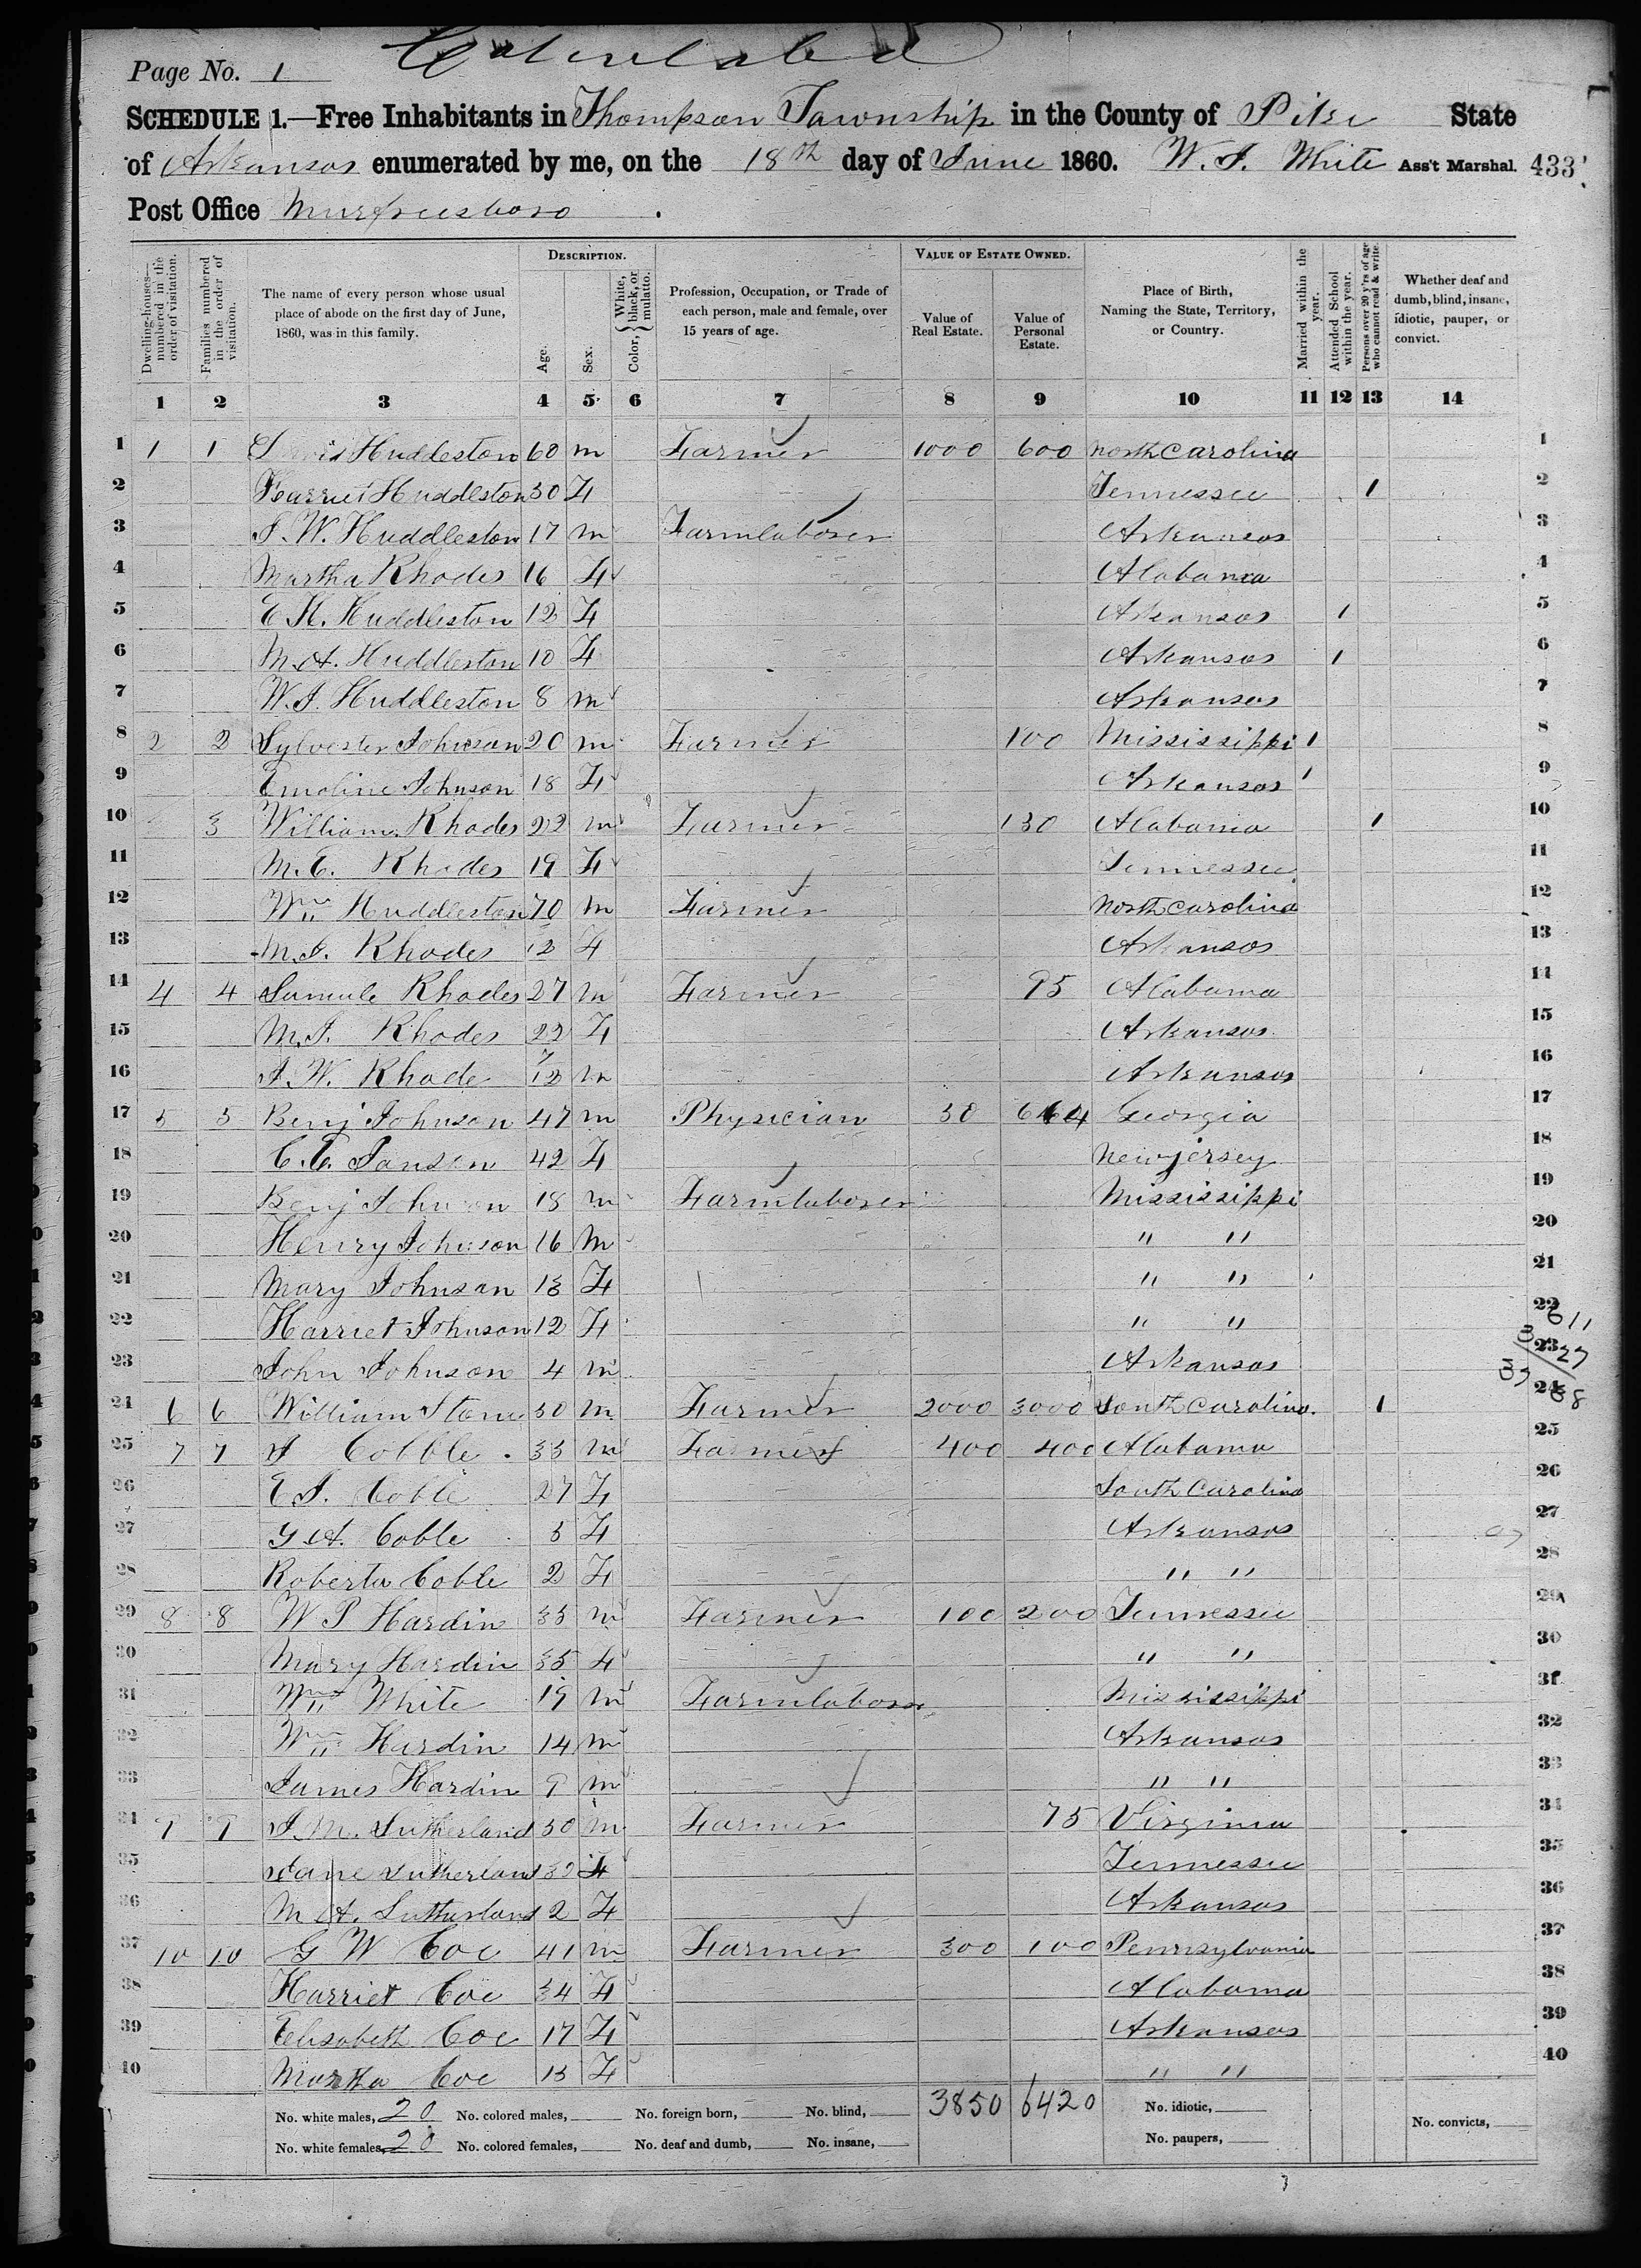 Page No. 1
SCHEDULE 1.—Free Inhabitants in Thompson Township in the County of Pike State
of Arkansas enumerated by me, on the 18th day of June 1860. W. J. White Ass't Marshal. 433
Post Office Murfreesboro
DESCRIPTION. VALUE OF ESTATE OWNED.
Dwelling-houses—numbered in the order of visitation. Families numbered in the order of visitation. The name of every person whose usual place of abode on the first day of June, 1860, was in this family. Age. Sex. Color, { White, black, or mulatto. Profession, Occupation, or Trade of each person, male and female, over 15 years of age. Value of Real Estate. Value of Personal Estate. Place of Birth, Naming the State, Territory, or Country. Married within the year. Attended School within the year. Persons over 20 y'rs of age who cannot read & write. Whether deaf and dumb, blind, insane, idiotic, pauper, or convict.
1 2 3 4 5 6 7 8 9 10 11 12 13 14
1 1 1 Huddleston 60 m Farmer 1000 600 North Carolina 1
2 Harriet Huddleston 30 F Tennessee 1 2
3 J. W. Huddleston 17 m Farmlaborer Arkansas 3
4 Martha Rhodes 16 F Alabama 4
5 E. H. Huddleston 12 F Arkansas 1 5
6 M. A. Huddleston 10 F Arkansas 1 6
7 W. J. Huddleston 8 m Arkansas 7
8 2 2 Sylvester Johnson 20 m Farmer 100 Mississippi 1 8
9 Emoline Johnson 18 F Arkansas 1 9
10 3 William Rhodes 22 m Farmer 130 Alabama 1 10
11 M. E. Rhodes 19 F Tennessee 11
12 Wm Huddleston 70 m Farmer North Carolina 12
13 M. J. Rhodes 12 F Arkansas 13
14 4 4 Samule Rhodes 27 m Farmer 95 Alabama 14
15 M. J. Rhodes 22 F Arkansas 15
16 J. W. Rhode 7/12 m Arkansas 16
17 5 5 Benj Johnson 47 m Physician 50 Georgia 17
18 C. C. 42 F New jersey 18
19 Benj Johnson 18 m Farmlaborer Mississippi 19
20 Henry Johnson 16 m " " 20
21 Mary Johnson 13 F " " 21
22 Harriet Johnson 12 F " " 22
23 John Johnson 4 m Arkansas 23
24 6 6 William Stone 50 m Farmer 2000 3000 South Carolina 1 24
25 7 7 J Cobble 33 m Farmer 400 400 Alabama 25
26 E J. Coble 27 F South Carolina 26
27 G. A. Coble 5 F Arkansas 27
28 Roberta Coble 2 F " " 28
29 8 8 W P Hardin 35 m Farmer 100 200 Tennessee 29
30 Mary Hardin 35 F " " 30
31 Wm White 19 m Farmlaborer Mississippi 31
32 Wm Hardin 14 m Arkansas 32
33 James Hardin 9 m " " 33
34 9 9 J. M. Sutherland 30 m Farmer 75 Virginia 34
35 Jane Sutherland 32 F Tennessee 35
36 M A. Sutherland 2 F Arkansas 36
37 10 10 G W Coe 41 m Farmer 300 100 Pennsylvania 37
38 Harriet Coe 34 F Alabama 38
39 Elisabeth Coe 17 F Arkansas 39
40 Martha Coe 13 F " " 40
No. white males, 20 No. colored males, No. foreign born, No. blind, 3850 6420 No. idiotic, No. convicts,
No. white females, 20 No. colored females, No. deaf and dumb, No. insane, No. paupers,